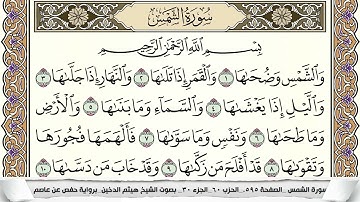 سُورَةُ الشَّمْسِ
بِسْمِ اللَّهِ الرَّحْمَٰنِ الرَّحِيمِ
وَالشَّمْسِ وَضُحَىٰهَا ١ وَالْقَمَرِ إِذَا تَلَىٰهَا ٢ وَالنَّهَارِ إِذَا جَلَّىٰهَا ٣
وَالَّيْلِ إِذَا يَغْشَىٰهَا ٤ وَالسَّمَآءِ وَمَا بَنَىٰهَا ٥ وَالْأَرْضِ
وَمَا طَحَىٰهَا ٦ وَنَفْسٍ وَمَا سَوَّىٰهَا ٧ فَأَلْهَمَهَا فُجُورَهَا
وَتَقْوَىٰهَا ٨ قَدْ أَفْلَحَ مَن زَكَّىٰهَا ٩ وَقَدْ خَابَ مَن دَسَّىٰهَا ١٠
سورة الشمس _الصفحة ٥٩٥_ الحزب ٦٠_ الجزء ٣٠_ بصوت الشيخ هيثم الدخين_ برواية حفص عن عاصم